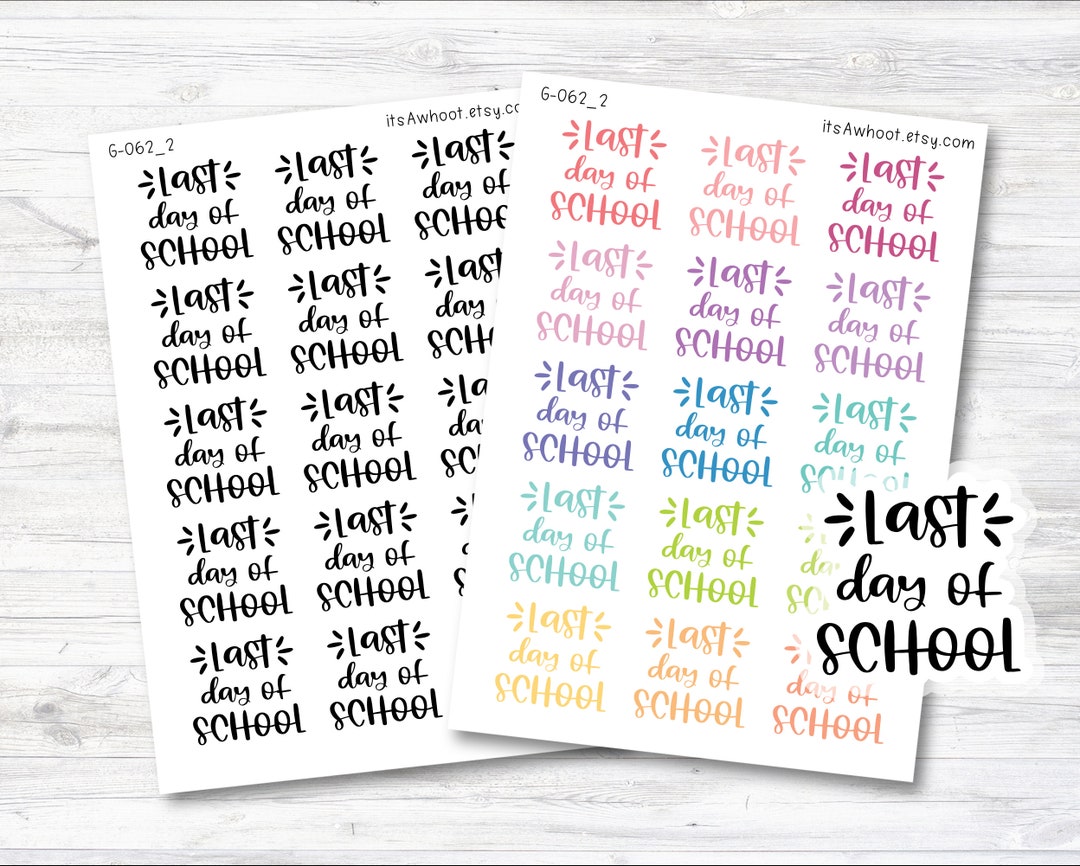 G-062_2
itsAwhoot.etsy.co
Last
day of
SCHOOL
Last
day of
SCHOOL
Last
day of
Last
day of
SCHOOL
Last
day of
SCHOOL
Last
day
Last
day of
SCHOOL
Last
day of
SCHOOL
Last
day of
SCHOOL
Last
day of
SCHOOL
Last
day of
SCHOOL
Last
day of
SCHOOL
G-062_2
itsAwhoot.etsy.com
Last
day of
SCHOOL
Last
day of
SCHOOL
Last
day of
SCHOOL
Last
day of
SCHOOL
Last
day of
SCHOOL
Last
day of
SCHOOL
Last
day of
SCHOOL
Last
day of
SCHOOL
Last
day of
SCHOOL
Last
day of
SCHOOL
Last
day of
SCHOOL
Last
day of
SCHOOL
Last
day of
SCHOOL
day of
SCHOOL
Last
day of
SCHOOL